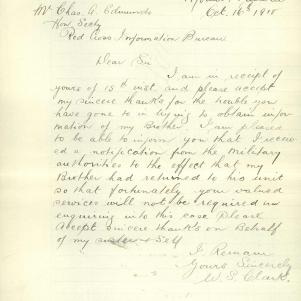 Oct. 16th 1918
Mr Chas. A. Edmunds
Hon. Secty
Red Cross Information Bureau
Dear Sir
I am in receipt
of yours of 15th inst. and please accept
my sincere thanks for the trouble you
have gone to in trying to obtain infor
mation of my Brother. I am pleased
to be able to inform you that I receiv
ed a notification from the Military
authorities to the effect that my
Brother had returned to his unit
so that fortunately your valued
services will not be required in
enquiring into this case Please
Accept sincere thanks on Behalf
of my sister & Self
I Remain
Yours Sincerely
W. S. Clark.